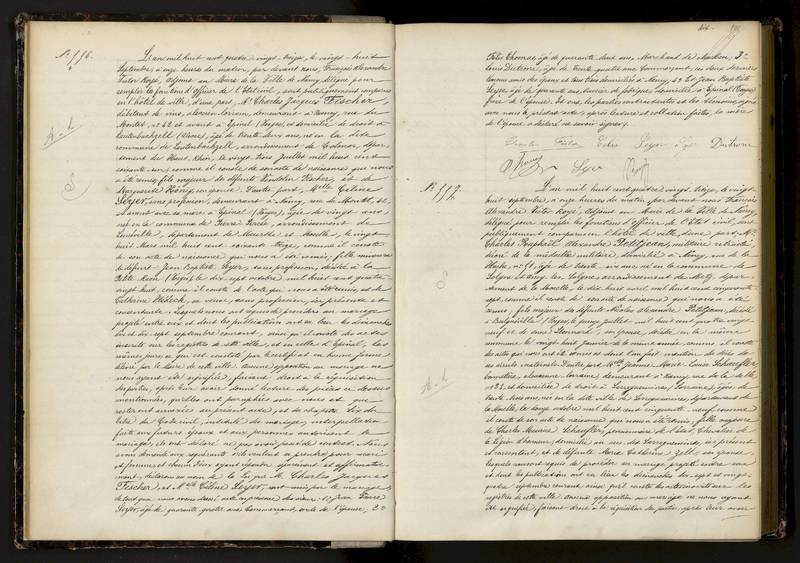 N° 776.
L'an mil huit cent quatre vingt treize, le vingt huit
Septembre, à onze heures du matin, par devant nous, François Alexandre
Victor Rozé, adjoint au Maire de la Ville de Nancy, délégué pour
remplir les fonctions d'officier de l'État civil, sont publiquement comparus
en l'hôtel de ville, d'une part, Mr Charles Jacques Fischer,
débitant de vins, alsacien-lorrain, demeurant à Nancy, rue du
Montet, n° 62 et avant à Épinal (Vosges), et domicilié de droit à
Lautenbachzell (Alsace), âgé de trente deux ans, né en la dite
commune de Lautenbachzell, arrondissement de Colmar, département
du Haut Rhin, le vingt trois juillet mil huit cent
soixante un, comme il conste de son acte de naissance que nous
a été remis, fils majeur de défunts Wendelin Fischer, et de
Marguerite Hönig, son épouse. D'autre part, Melle Céline
Leyer, sans profession, demeurant à Nancy, rue du Montet, 62,
et avant avec sa mère à Épinal (Vosges), âgée de vingt ans,
née en la commune de Pierre Percée, arrondissement de
Lunéville, département de Meurthe et Moselle, le vingt
huit Mars mil huit cent soixante treize, comme il conste
de son acte de naissance que nous a été remis, fille mineure
de défunt Jean Baptiste Leyer, sans profession, décédé à la
Petite Raon (Vosges), le dix sept octobre mil huit cent quatre
vingt huit, comme il conste de l'acte que nous a été remis, et de
Catherine, sa veuve, sans profession, ici présente et
consentante. Lesquels nous ont requis de procéder au mariage
projeté entre eux et dont les publications ont eu lieu les dimanches
dix et dix sept septembre courant, ainsi qu'il conste des actes
inscrits sur les registres de cette ville, et en celle d'Épinal, les
mêmes jours, ce qui est constaté par le certificat en bonne forme
délivré par le Maire de cette ville. Aucune opposition au mariage ne
nous ayant été signifiée, faisant droit à la réquisition
des parties, après leur avoir donné lecture des pièces ci dessus
mentionnées, qu'elles ont paraphées avec nous et qui
resteront annexées au présent acte, et du chapitre six du
titre du Code civil, intitulé du mariage, interpellation
faite aux futurs époux et aux personnes autorisant le
mariage, ils ont déclaré ne pas avoir passé de contrat. Nous
avons demandé aux requérants s'ils veulent se prendre pour mari
et femme, et chacun d'eux ayant répondu séparément et affirmativement,
déclarons au nom de la Loi que M. Charles Jacques
Fischer et Melle Céline Leyer sont unis par le mariage
de tout quoi nous avons dressé acte en présence des sieurs: 1° Jean Pierre
Leyer, âgé de quarante quatre ans, Commerçant, oncle de l'épouse, 2°
Thomas, âgé de quarante deux ans, Marchand de, 3°
Louis Dutronc, âgé de trente quatre ans, Commerçant, ces deux derniers
témoins amis des époux et tous trois domiciliés à Nancy, 4° et Jean Baptiste
Leyer, âgé de ans, ouvrier de fabrique, domicilié à Épinal (Vosges),
frère de l'épouse. Et ont, les parties contractantes et les témoins, signé
avec nous le présent acte, après lecture et collation faites, la mère
de l'épouse a déclaré ne savoir signer.
Leyer Dutronc
Leyer Rozé
N° 777.
L'an mil huit cent quatre vingt treize, le vingt
huit septembre, à onze heures du matin, par devant nous François
Alexandre Victor Rozé, adjoint au Maire de la Ville de Nancy,
délégué pour remplir les fonctions d'officier de l'État civil, sont
publiquement comparus en l'hôtel de ville, d'une part, Mr
Charles Raphaël Alexandre Petitjean, militaire retraité,
décoré de la médaille militaire, domicilié à Nancy, rue de la
n° 51, âgé de trente six ans, né en la commune de
Solgne, arrondissement de Metz, département
de la Moselle, le dix huit avril mil huit cent cinquante
sept, comme il conste de son acte de naissance qui nous a été
remis, fils majeur de défunts Nicolas Alexandre Petitjean, décédé
à (Vosges), le quinze juillet mil huit cent quatre vingt
neuf et de Anne, son épouse, décédée en la même
commune le vingt huit janvier de la même année, comme il conste
des actes que nous ont été remis et dont l'un fait mention du décès de
ses aïeuls maternels. D'autre part, Melle Jeanne Marie Louise Scheuffler,
, alsacienne lorraine, demeurant à Nancy, rue de la
n° 28, et domiciliée de droit à Sarreguemines, Lorraine, âgée de
trente trois ans, née en la dite ville de Sarreguemines, département de
la Moselle, le onze octobre mil huit cent cinquante neuf, comme
il conste de son acte de naissance qui nous a été remis, fille majeure
de Charles Maurice Scheuffler, pensionnaire de l'État, Chevalier de
la Légion d'honneur, domicilié au dit Sarreguemines, ici présent
et consentant, et de défunte Marie Catherine Zell, son épouse.
Lesquels nous ont requis de procéder au mariage projeté entre eux
et dont les publications ont eu lieu les dimanches dix sept et vingt
quatre septembre courant, ainsi qu'il conste des actes inscrits sur les
registres de cette ville. Aucune opposition au mariage ne nous ayant
été signifiée, faisant droit à la réquisition des parties, après leur avoir